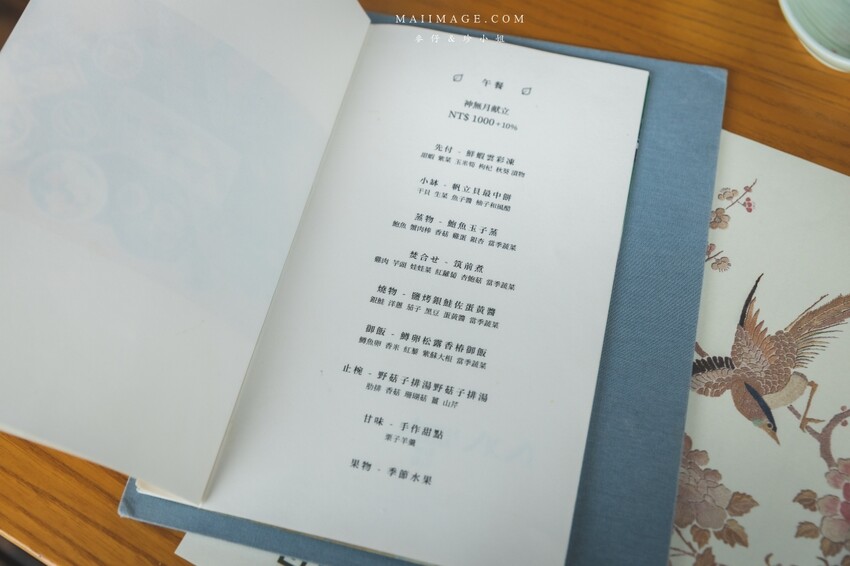 MAIIMAGE.COM
麥仔&哈小妞
午餐
神無月献立
NT$ 1000+10%
先付 - 鮮蝦雲彩凍
甜蝦 紫菜 玉米筍 枸杞 秋葵 漬物
小缽 - 帆立貝最中餅
干貝 生菜 魚子醬 柚子和風醋
蒸物 - 鮑魚玉子蒸
鮑魚 蟹肉棒 香菇 雞蛋 銀杏 當季蔬菜
焚合せ - 筑前煮
雞肉 芋頭 娃娃菜 紅蘿蔔 杏鮑菇 當季蔬菜
燒物 - 鹽烤銀鮭佐蛋黃醬
銀鮭 洋蔥 茄子 黑豆 蛋黃醬 當季蔬菜
御飯 - 鱒卵松露香椿御飯
鱒魚卵 香米 紅藜 紫蘇大根 當季蔬菜
止椀 - 野菇子排湯野菇子排湯
肋排 香菇 珊瑚菇 薑 山芹
甘味 - 手作甜點
栗子羊羹
果物 - 季節水果